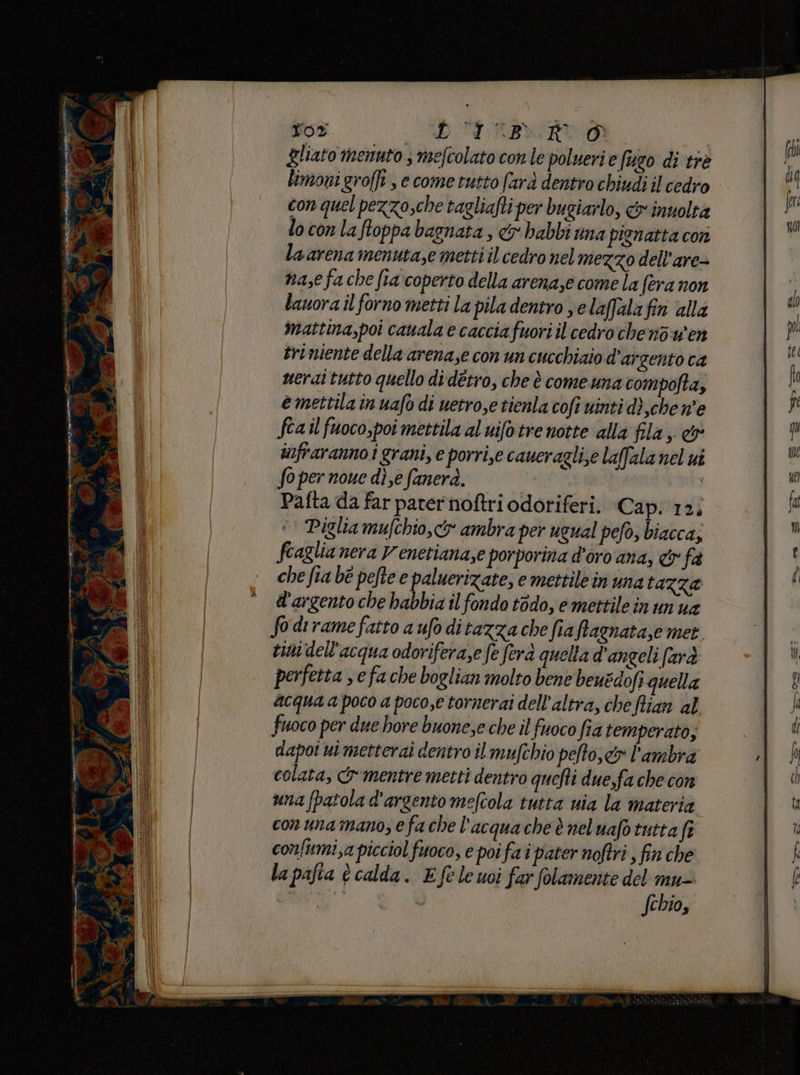 102 LIBRO
gliato menuto, meſcolato con le polueri e ſugo di tre
limoni groſſi, e come tutto ſarà dentro chiudi il cedro
con quel pezzo,che tagliaſti per bugiarlo, & inuolta
lo con la ſtoppa bagnata, & habbi una pignatta con
la arena menuta,e metti il cedro nel mezzo dell'are-
na,e fa che ſia coperto della arena,e come la ſera non
lauora il forno metti la pila dentro, e laſſala fin alla
mattina,poi cauala e caccia fuori il cedro che nō u'en
tri niente della arena,e con un cucchiaio d'argento ca
uerai tutto quello di dētro, che è come una compoſta,
e mettila in uaſo di uetro,e tienla coſi uinti dì,che n'e
ſca il fuoco,poi mettila al uiſo tre notte alla fila, &
infraranno i grani, e porri,e caueragli,e laſſala nel ui
ſo per noue dì,e ſanerà.
Paſta da far pater noſtri odoriferi. Cap. 12.
Piglia muſchio,& ambra per ugual peſo, biacca,
ſcaglia nera Venetiana,e porporina d'oro ana, & fa
che ſia bē peſte e paluerizate, e mettile in una tazza
d'argento che habbia il fondo tōdo, e mettile in un ua
ſo di rame fatto a uſo di tazza che ſia ſtagnata,e met
tiui dell'acqua odorifera,e ſe ſerà quella d'angeli ſarà
perfetta, e fa che boglian molto bene beuēdoſi quella
acqua a poco a poco,e tornerai dell'altra, che ſtian al
fuoco per due hore buone,e che il fuoco ſia temperato,
dapoi ui metterai dentro il muſchio peſto,& l'ambra
colata, & mentre metti dentro queſti due,fa che con
una ſpatola d'argento meſcola tutta uia la materia
con una mano, e fa che l'acqua che è nel uaſo tutta ſi
conſumi,a picciol fuoco, e poi fa i pater noſtri, fin che
la paſta è calda. E ſe le uoi far ſolamente del mu-
ſchio,